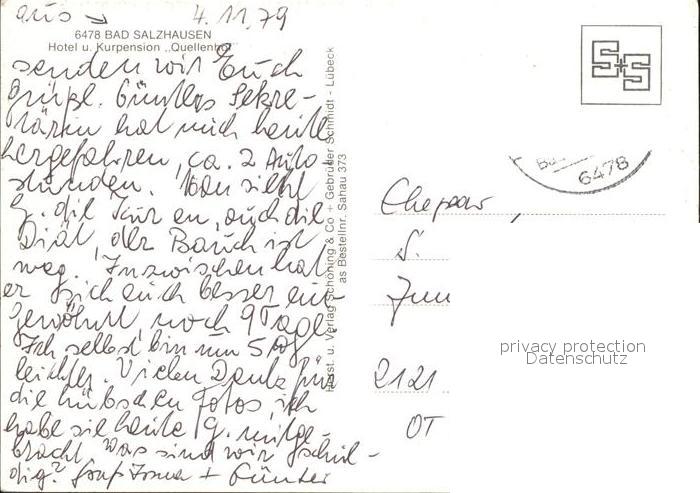 aus → 4.11.79
6478 BAD SALZHAUSEN
Hotel u. Kurpension „Quellenhof“
senden wir Euch
Grüße. Günters Sekre-
tärin hat mich heute
hergefahren, ca. 2 Auto-
stunden. Man sieht
G. die Kur an, auch die
Diät, der Bauch ist
weg. Inzwischen hat
er sich auch besser ein-
gewöhnt, noch 9 Tage.
Ich selbst bin um 5
leichter. Vielen Dank für
die hübschen Fotos, ich
habe sie heute G. mitge-
bracht. Was sind wir schul-
dig? Irma + Günter
Schöning & Co + Gebrüder Schmidt - Lübeck
Bestellnr. Sahau 373
S+S
6478
Ehepaar,
S.
2121
OT
privacy protection
Datenschutz